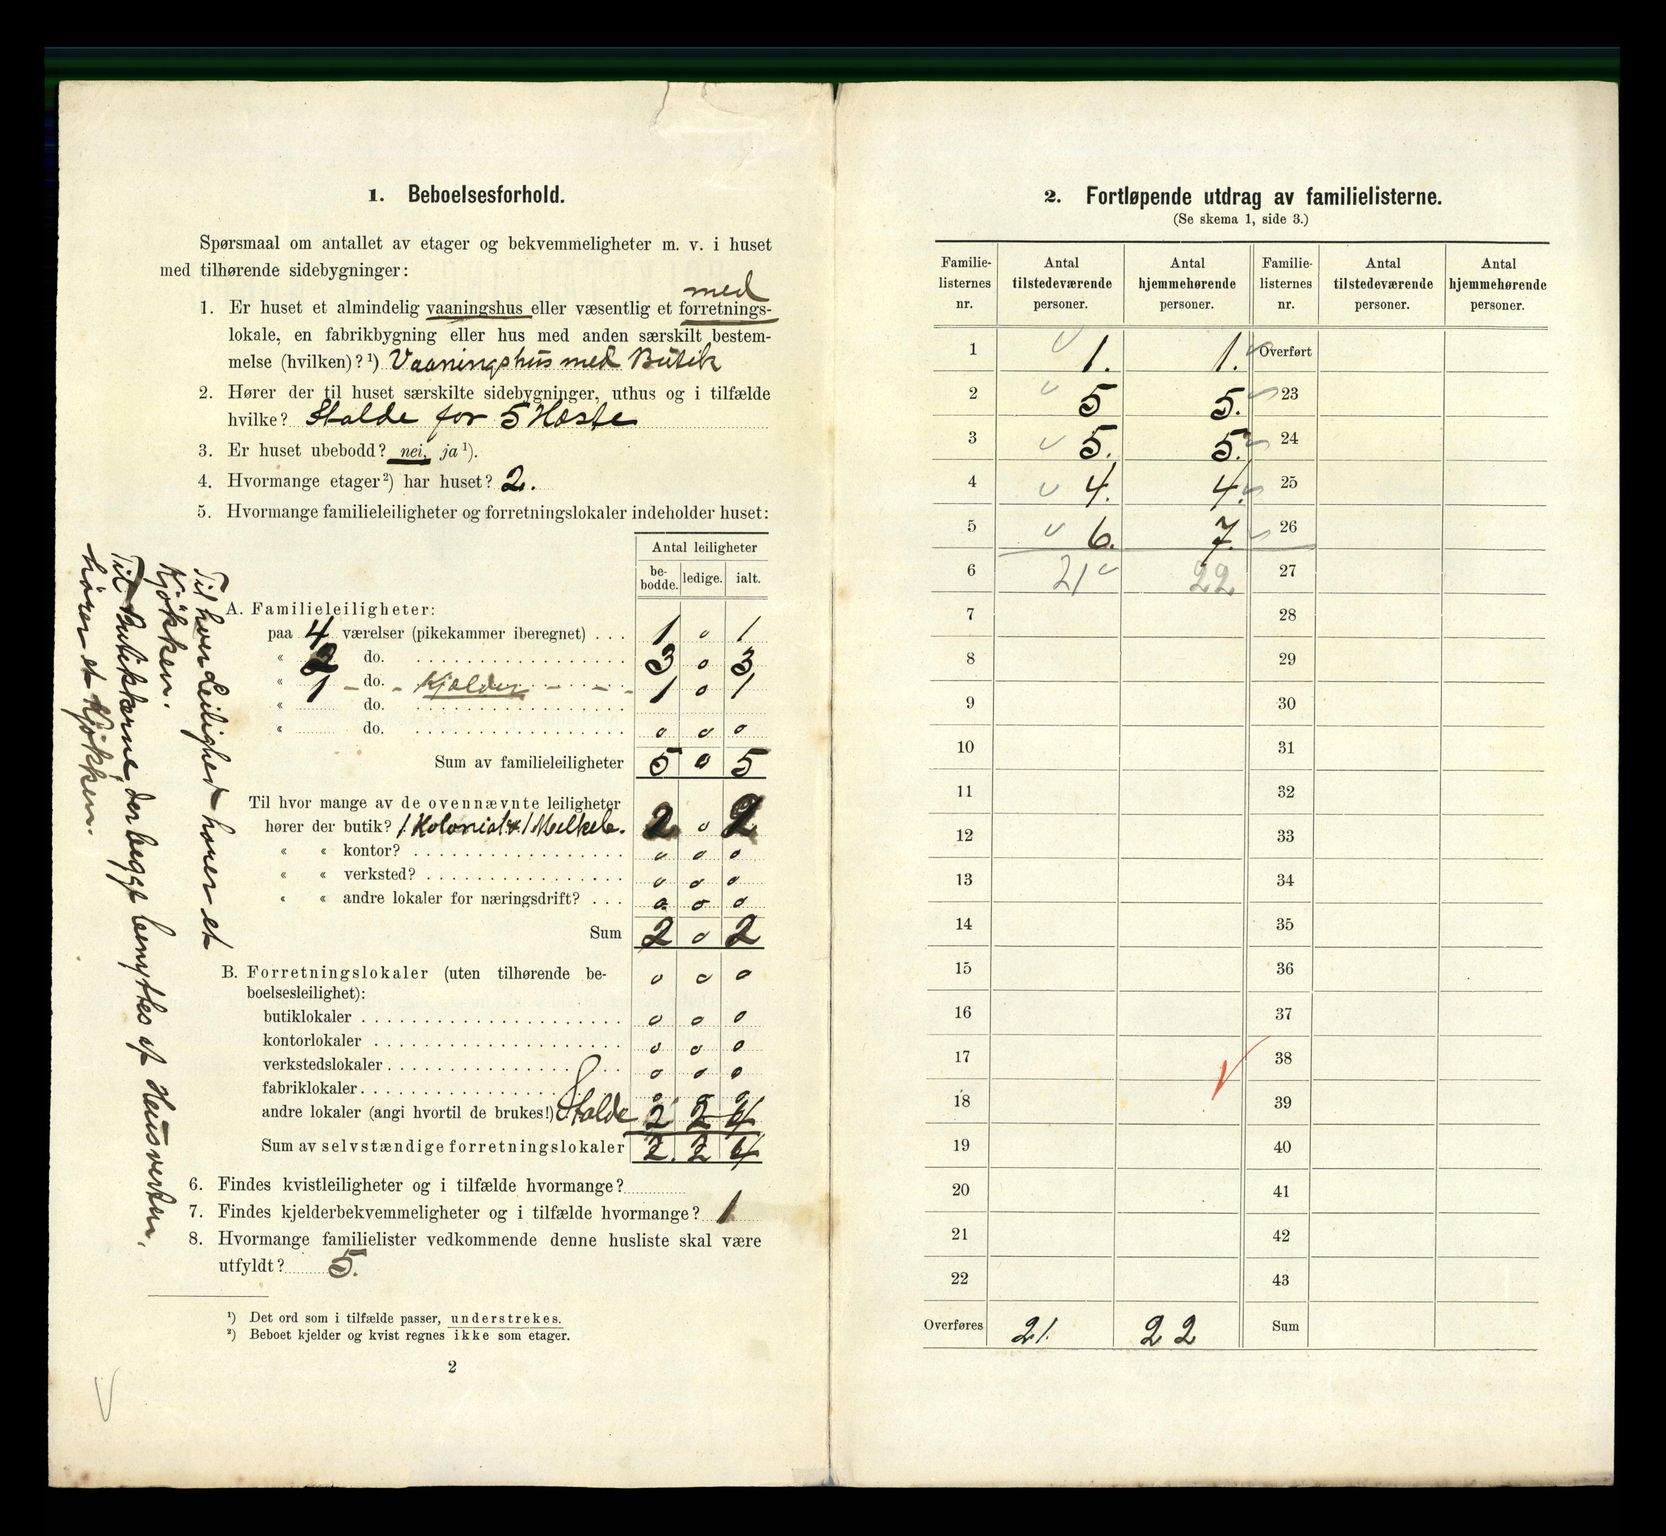 1. Beboelsesforhold.
Spørsmaal om antallet av etager og bekvemmeligheter m. v. i huset
med tilhørende sidebygninger:
med
1. Er huset et almindelig vaaningshus eller væsentlig et forretnings-
lokale, en fabrikbygning eller hus med anden særskilt bestem-
melse (hvilken)?¹) Vaaningshus med Butik
2. Hører der til huset særskilte sidebygninger, uthus og i tilfælde
hvilke? Stalde for 5 Heste
3. Er huset ubebodd? nei, ja¹).
4. Hvormange etager²) har huset? 2.
5. Hvormange familieleiligheter og forretningslokaler indeholder huset:
Antal leiligheter
be-
bodde. ledige. ialt.
A. Familieleiligheter:
paa 4 værelser (pikekammer iberegnet) . . . 1 0 1
« 2 do. 3 0 3
« 1 do. Kjælder 1 0 1
« do.
« do. 0 0 0
Sum av familieleiligheter 5 0 5
Til hvor mange av de ovennævnte leiligheter
hører der butik? 1 Kolonial & 1 Melkeb. 2 0 2
« « kontor? 0 0 0
« « verksted? 0 0 0
« « andre lokaler for næringsdrift? . . . 0 0 0
Sum 2 0 2
B. Forretningslokaler (uten tilhørende be- 0 0 0
boelsesleilighet):
butiklokaler 0 0 0
kontorlokaler 0 0 0
verkstedslokaler 0 0 0
fabriklokaler 0 0 0
andre lokaler (angi hvortil de brukes!) Stalde 2 2 4
Sum av selvstændige forretningslokaler 2. 2 4
6. Findes kvistleiligheter og i tilfælde hvormange?
7. Findes kjelderbekvemmeligheter og i tilfælde hvormange? 1
8. Hvormange familielister vedkommende denne husliste skal være
utfyldt? 5.
¹) Det ord som i tilfælde passer, understrekes.
²) Beboet kjelder og kvist regnes ikke som etager.
2
Til hver Leilighed hører et
Kjökken.
Til Butikkerne, der begge benyttes af Husverten,
hører et Kjökken.
2. Fortløpende utdrag av familielisterne.
(Se skema 1, side 3.)
Familie- Antal Antal Familie- Antal Antal
listernes tilstedeværende hjemmehørende listernes tilstedeværende hjemmehørende
nr. personer. personer. nr. personer. personer.
1 1. 1. Overført
2 5 5. 23
3 5. 5. 24
4 4. 4. 25
5 6. 7. 26
6 21 22 27
7 28
8 29
9 30
10 31
11 32
12 33
13 34
14 35
15 36
16 37
17 38
18 39
19 40
20 41
21 42
22 43
Overføres 21. 22 Sum